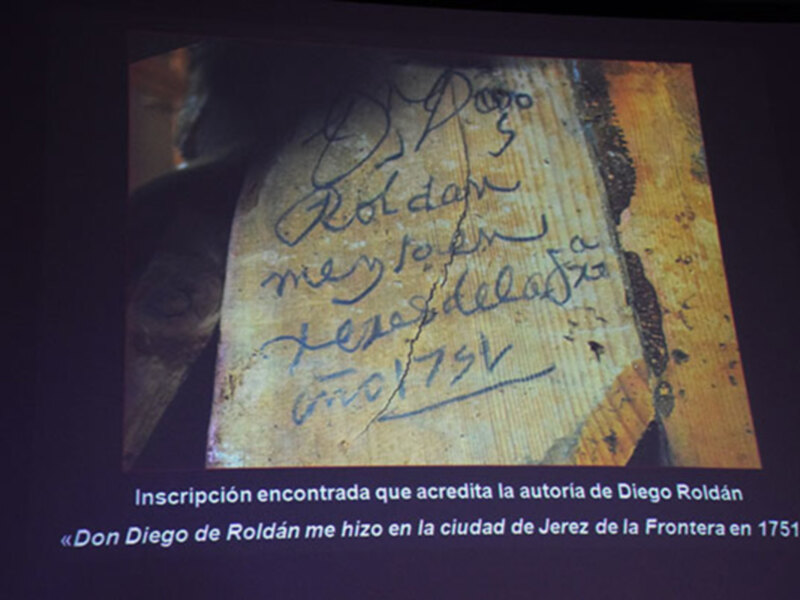 Roldan
me yso en
xeres de la fra
año 1751
Inscripción encontrada que acredita la autoría de Diego Roldán
«Don Diego de Roldán me hizo en la ciudad de Jerez de la Frontera en 1751